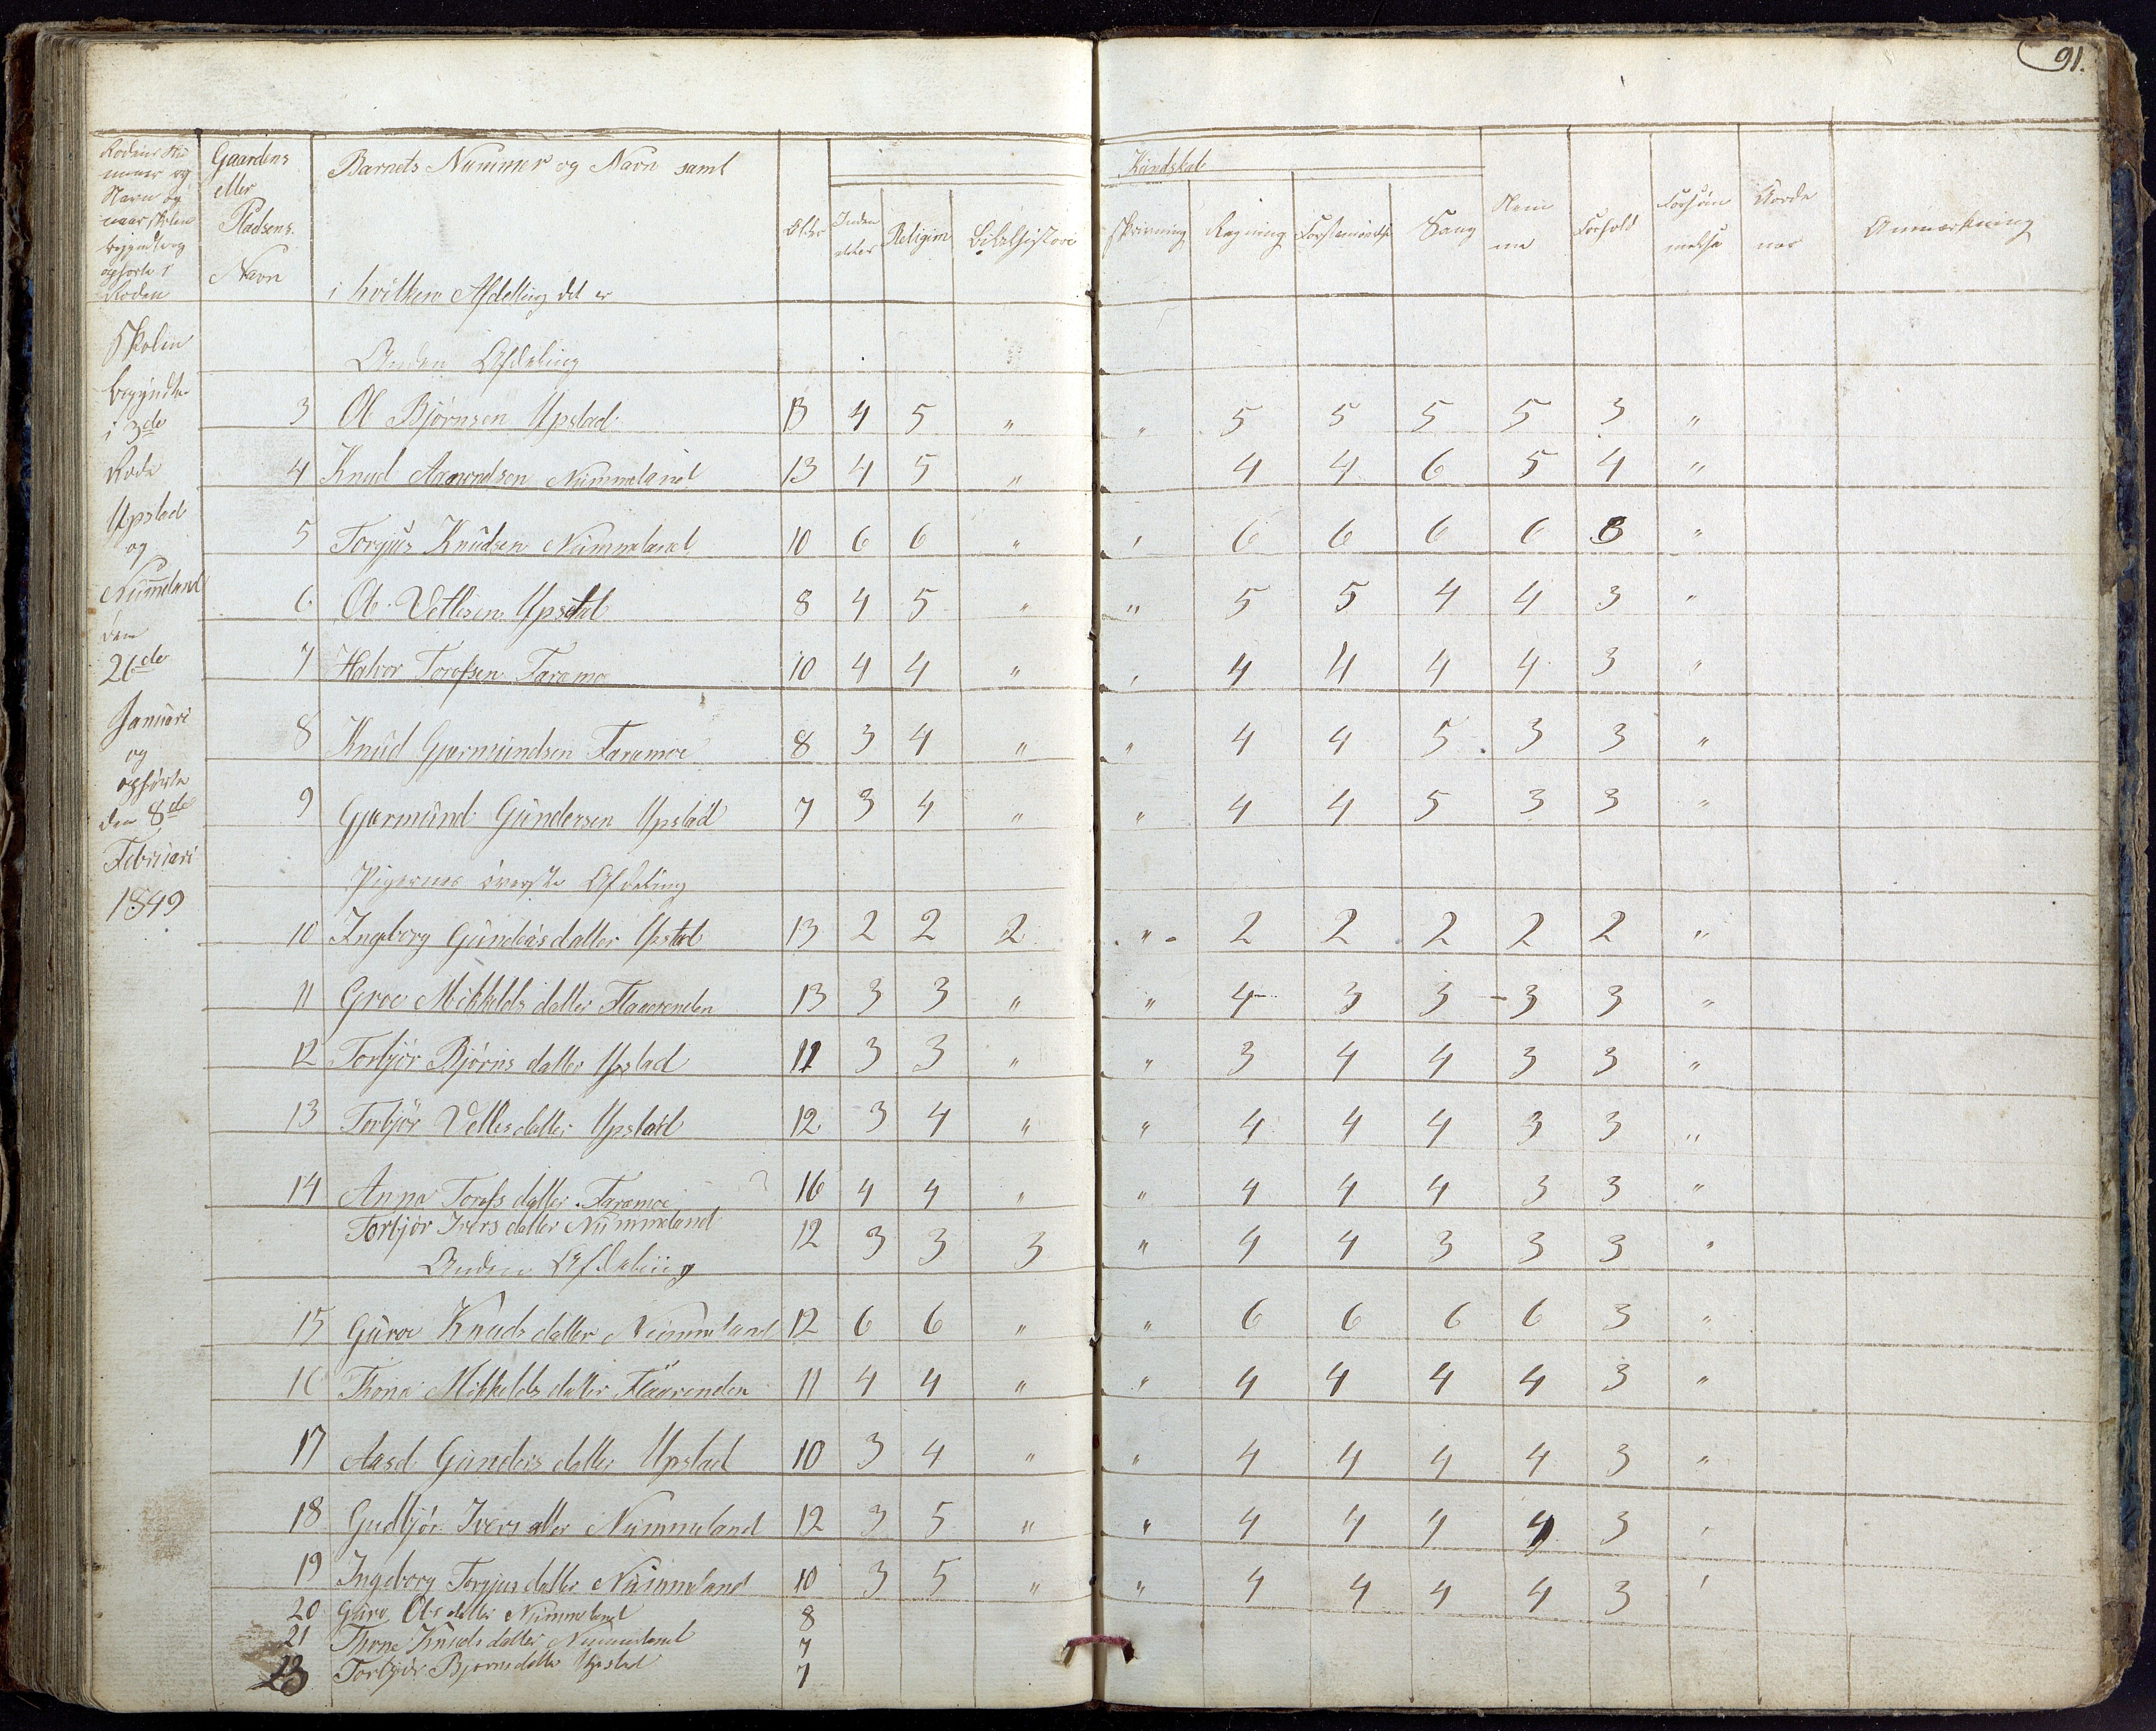 91.
Gaardens eller Pladsens Navn
Barnets Nummer og Navn samt i hvilken Afdeling det er
Alder
Religion
Bibelhistorie
Kundskab
Skrivning
Regning
Sang
Nemme
Forhold
Forsømmelse
Anmærkning
Skolen
begyndte
i 3de
Rode
Upstad
og
Nummeland
den
26de
Januari
og
ophørte
den 8de
Februari
1849
Anden Afdeling
3 Ol Bjørnsen Upstad 13 4 5 " " 5 5 5 5 3 "
4 Knud Aamondsen Nummeland 13 4 5 " 4 4 6 5 4 "
5 Torgus Knudsen Nummeland 10 6 6 " " 6 6 6 6 3 "
6 Ole Vetlesen Upstad 8 4 5 " " 5 5 4 4 3 "
7 Halvor Torofsen Faramo 10 4 4 " " 4 4 4 4 3 "
8 Knud Gjermundsen Faramoe 8 3 4 " " 4 4 5 3 3 "
9 Gjermund Gundersen Upstad 7 3 4 " " 4 4 5 3 3 "
Pigernes øverste Afdeling
10 Ingeborg Gundersdatter Upstad 13 2 2 2 " 2 2 2 2 2 "
11 Groe Mikkelsdatter Flaarenden 13 3 3 " " 4 3 3 3 3 "
12 Torbjør Bjørnsdatter Upstad 11 3 3 " " 3 4 4 3 3 "
13 Torbjør Vetlesdatter Upstad 12 3 4 " " 4 4 4 3 3 "
14 Anne Torofsdatter Faramoe 16 4 4 " " 4 4 4 3 3 "
Torbjør Iversdatter Nummeland 12 3 3 3 " 4 4 3 3 3 "
Anden Afdeling
15 Guroe Knudsdatter Nummeland 12 6 6 " " 6 6 6 6 3 "
16 Thone Mikkelsdatter Flaarenden 11 4 4 " " 4 4 4 4 3 "
17 Aasd Gundersdatter Upstad 10 3 4 " " 4 4 4 4 3 "
18 Gudbjør Iversdatter Nummeland 12 3 5 " " 4 4 4 4 3 "
19 Ingeborg Torgjusdatter Nummeland 10 3 5 " " 4 4 4 4 3 "
20 Guro Olsdatter Nummeland 8
21 Thone Knudsdatter Nummeland 7
Torbjør Bjørnsdatter Upstad 7